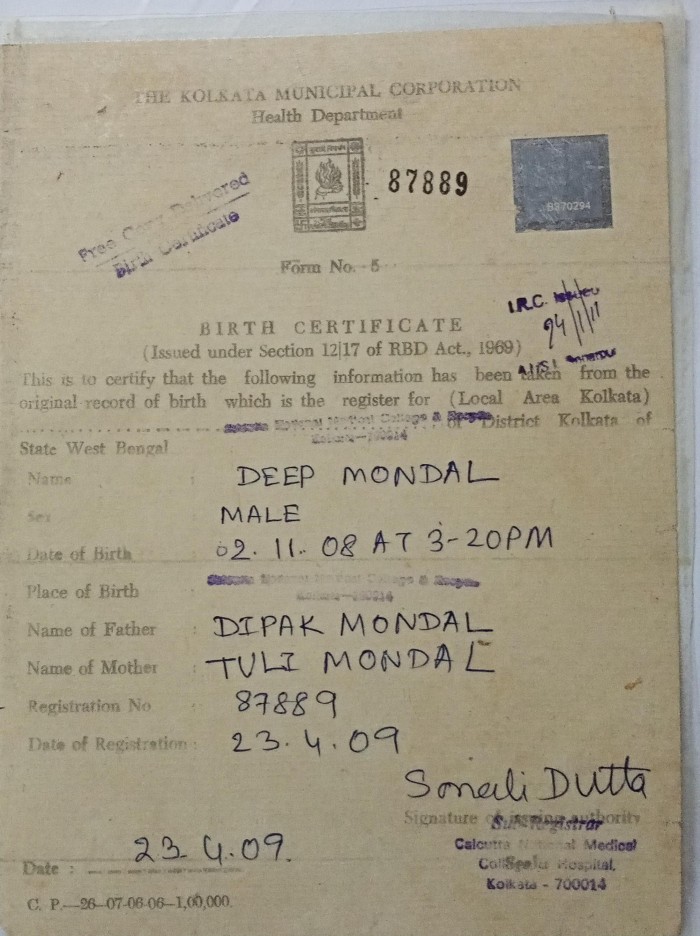 THE KOLKATA MUNICIPAL CORPORATION
Health Department
87889
B370294
Free Copy Delivered
Birth Certificate
Form No. 5
I.R.C. Issued
24/1/11
BIRTH CERTIFICATE
(Issued under Section 12|17 of RBD Act., 1969)
This is to certify that the following information has been taken from the
original record of birth which is the register for (Local Area Kolkata)
Calcutta National Medical College & Hospital of District Kolkata of
Kolkata-700014
State West Bengal
Name : DEEP MONDAL
Sex MALE
Date of Birth : 02. 11. 08 AT 3-20PM
Place of Birth : Calcutta National Medical College & Hospital
Kolkata-700014
Name of Father : DIPAK MONDAL
Name of Mother : TULI MONDAL
Registration No : 87889
Date of Registration : 23.4.09
Sonali Dutta
Signature of issuing authority
Sub-Registrar
Calcutta National Medical
College Hospital,
Kolkata - 700014
Date : 23.4.09.
C. P.—26-07-06-06-1,00,000.